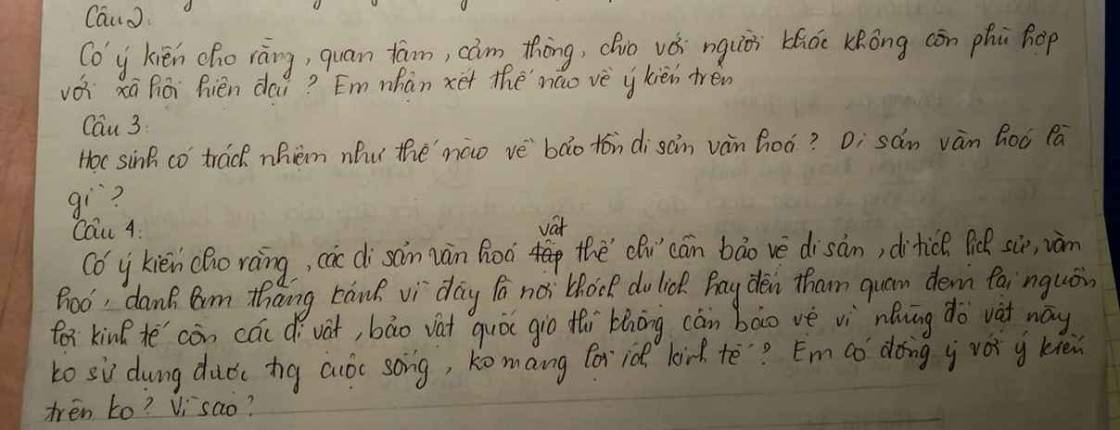 Câu 2:
Có ý kiến cho rằng, quan tâm, cảm thông, chia với người khác không còn phù hợp
với xã hội hiện đại? Em nhận xét thế nào về ý kiến trên
Câu 3:
Học sinh có trách nhiệm như thế nào về bảo tồn di sản văn hoá? Di sản văn hoá là
gì?
Câu 4:
Có ý kiến cho rằng, các di sản văn hoá vật thể chỉ cần bảo vệ di sản, di tích lịch sử, văn
hoá, danh lam thắng cảnh vì đây là nơi khách du lịch hay đến tham quan đem lại nguồn
lợi kinh tế còn các di vật, bảo vật quốc gia thì không cần bảo vệ vì những đồ vật này
ko sử dụng được trg cuộc sống, ko mang lợi ích kinh tế? Em có đồng ý với ý kiến
trên ko? Vì sao?